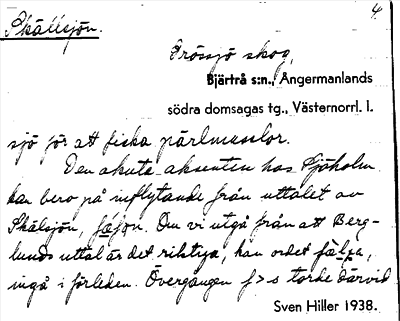 Skällsjön.
4
Frössjö skog,
Bjärtrå s:n., Ångermanlands
södra domsagas tg., Västernorrl. l.
sjö för att fiska pärlmusslor.
Den akuta aksenten hos Sjöholm
kan bero på inflytande från uttalet av
Skälsjön, Om vi utgå från att Berg-
lunds uttal är det riktiga, kan ordet
ingå i förleden. Övergången f > s torde därvid
Sven Hiller 1938.